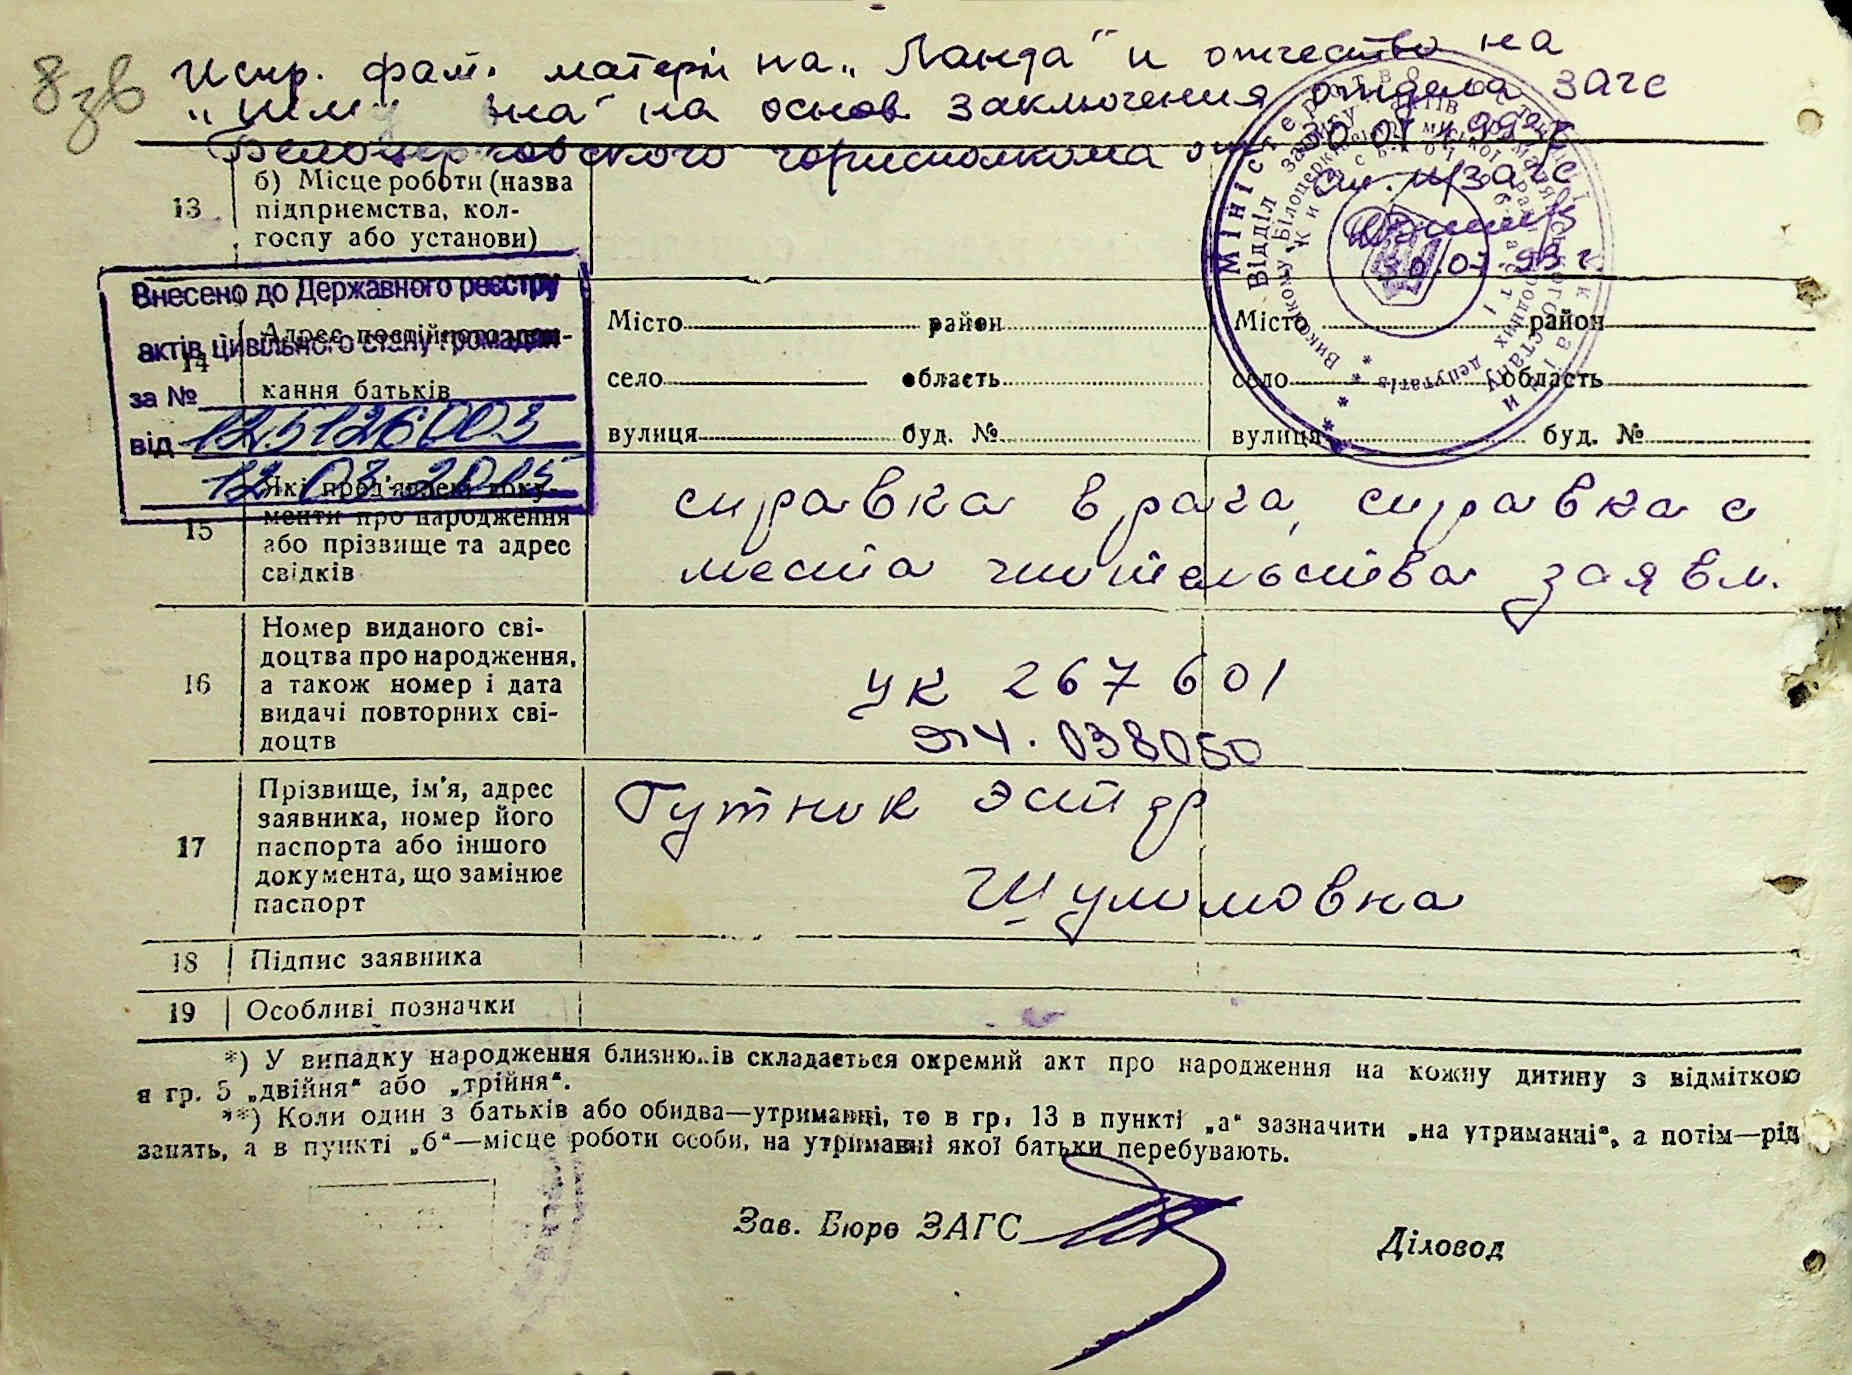 8 зв
Испр. фам. матери на „Ланда“ и отчество на
на основ. заключения отдела загс
Белоцерковского горисполкома от 30.07.1993г
загс
13
б) Місце роботи (назва
підприємства, кол-
госпу або установи)
Внесено до Державного реєстру
актів цивільного стану громадян
за №
125126003
від
12.08.2015
Міністерство юстиції України
Відділ
14
Адрес постійного меш-
кання батьків
Місто район Місто район
село область село область
вулиця буд. № вулиця буд. №
15
Які пред'явлені доку-
менти про народження
або прізвище та адрес
свідків
справка врача, справка с
места жительства заявл.
16
Номер виданого сві-
доцтва про народження,
а також номер і дата
видачі повторних сві-
доцтв
УК 267601
038050
17
Прізвище, ім'я, адрес
заявника, номер його
паспорта або іншого
документа, що замінює
паспорт
Гутник Эстер
Шулимовна
18 Підпис заявника
19 Особливі позначки
*) У випадку народження близнюків складається окремий акт про народження на кожну дитину з відміткою
в гр. 5 „двійня“ або „трійня“.
**) Коли один з батьків або обидва—утриманці, то в гр. 13 в пункті „а“ зазначити „на утриманні“, а потім—рід
занять, а в пункті „б“—місце роботи особи, на утриманні якої батьки перебувають.
Зав. Бюро ЗАГС Діловод